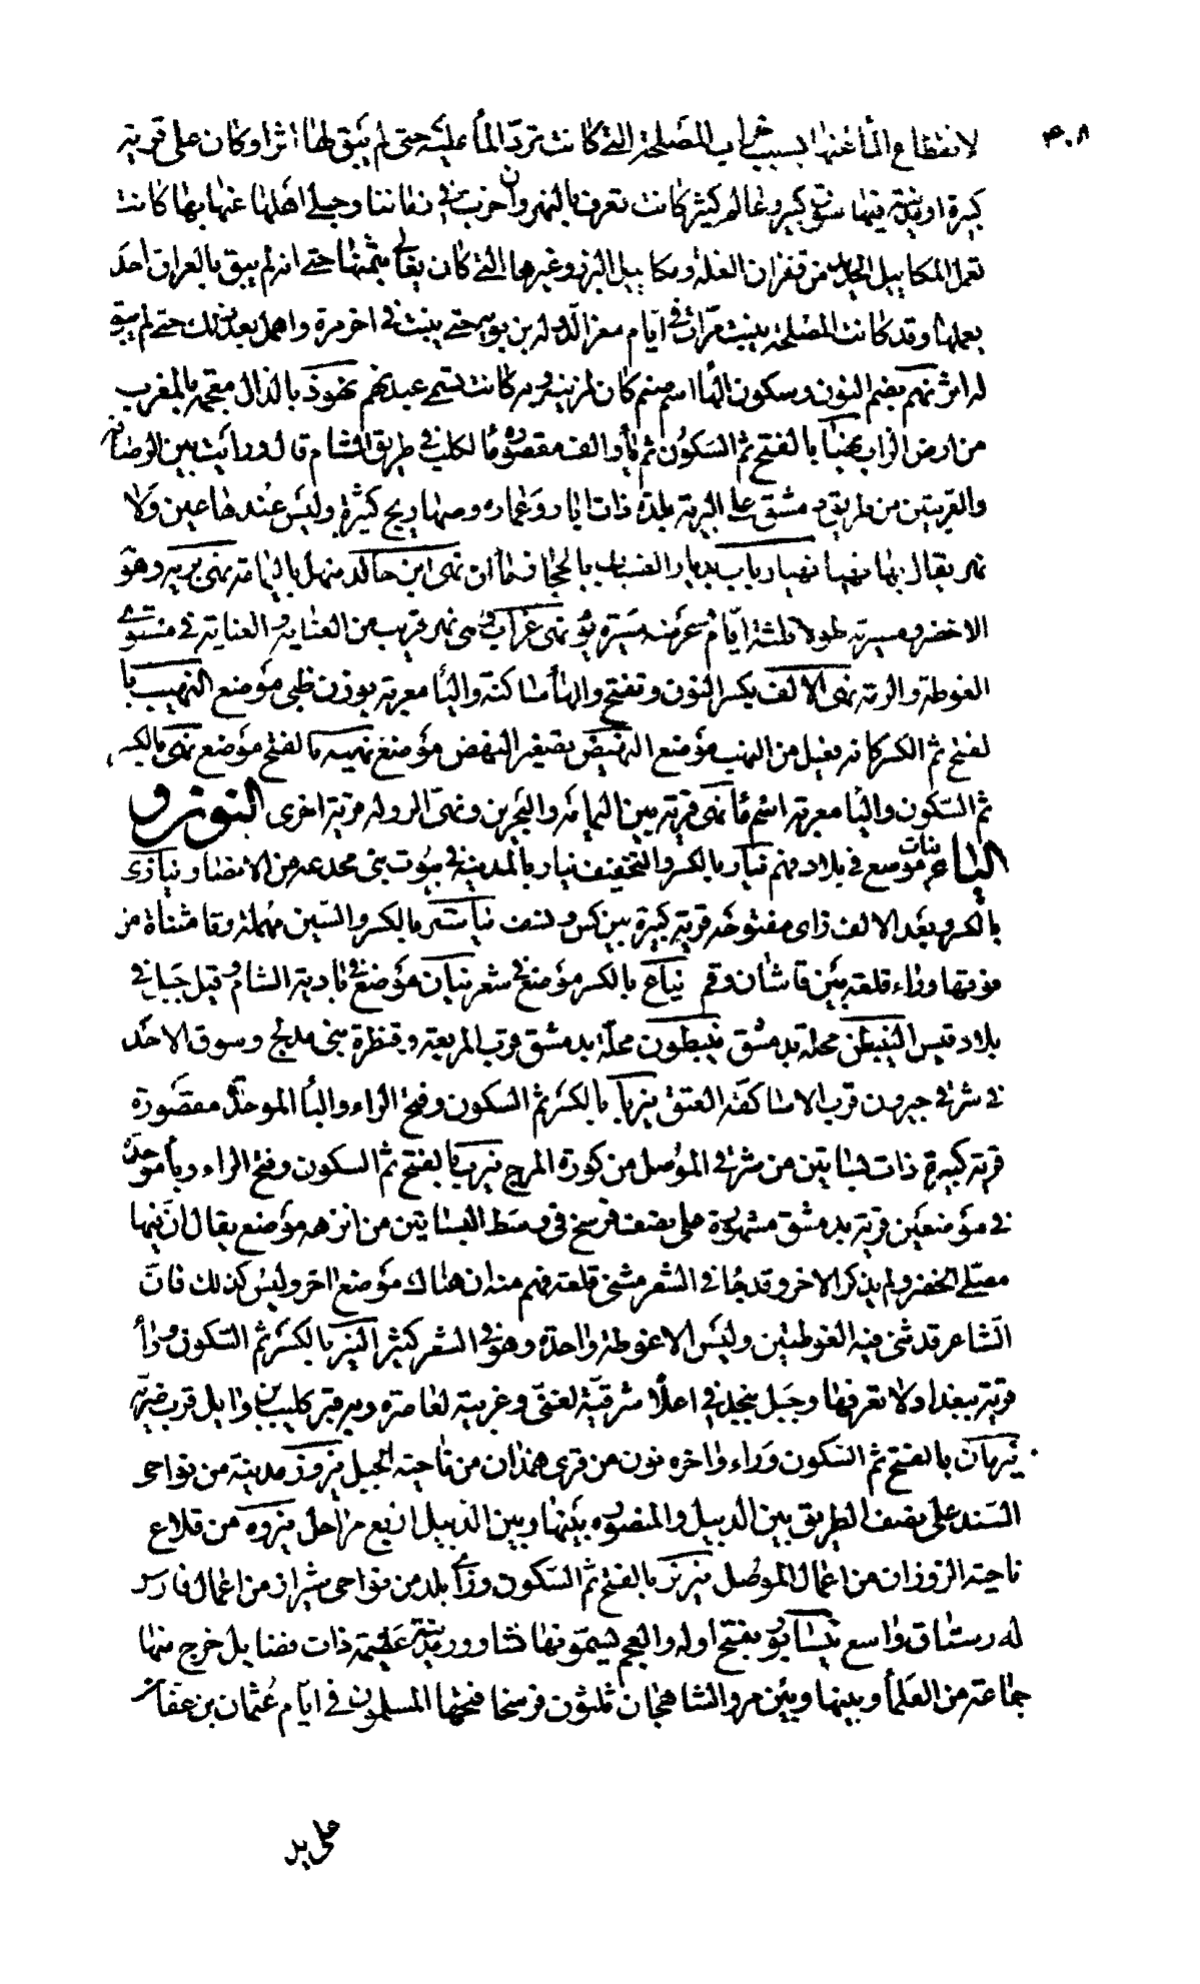 ٣٠٨
لانقطاع المأ عنها بسبب خراب المصلحة التي كانت تردّ المأ عليه حتى لم يبق لها اثرا وكان على قرية
كبيرة او مدينة فيها سوق كبير وعالم كثير كانت تعرف بالنهروان خربت في زماننا وجلي اهلها عنها بها كانت
تعمل المكاييل من قفزان الغلة ومكاييل البزر وغيرها التي كان يغالي بثمنها حتى انه لم يبق بالعراق احد
يعملها وقد كانت المصلحة بنيت مرّات في ايّام معز الدوله بن بويه حتى بنيت في اخر مرة واهمل بعد ذلك حتى لم يبق
له اثر نهم بضم النون وسكون الها اسم صنم كان لمزينه وبه كانت تسمى عبد نهم نهوذ بالذال معجمه بالمغرب
من ارض الزاب نهيا بالفتح ثم السكون ثم يأ والف مقصوره مأ لكلب في طريق الشام قال ورايت بين الرصافة
والقريتين من طريق دمشق على البرية بلدة ذات ابار وعماره وصهاريج كثيرة وليس عندها عين ولا
نهر يقال لها نهيا نهيا رباب بديار الضباب بالحجاز فمأان نهى ابن خالد منهل باليمامة نهى تربه وهو
الاخضر ومسيرته طولا ثلثة ايّام نهى غراب وهى نهر قريب من العنابه والعنابة في مستوى
الغوطة والرمة نهى الالف بكسر النون وتفتح والهأ ساكنة واليأ معربة بوزن ظبى موضع النهيب با
لفتح ثم الكسر كانه فعيل من النهب موضع النهيض تصغير النهض موضع نهيه بالفتح موضع نهى بالكسر
ثم السكون واليأ معربة اسم مأ نهى قرية بين اليمامه والبحرين ونهى الدوله قرية اخرى النون و
الياء نيات موضع في بلاد فهم نيار بالكسر والتخفيف نيار بالمدينة في بيوت بنى مجدعه من الانصار نيازى
بالكسر وبعد الالف زاى مفتوحه قرية كبيرة بين كس ونسف نياستر بالكسر والسين مهملة وتا مثناة من
فوقها وراء قلعة بين قاشان وقم نياع بالكسر موضع في شعر نيان موضع في بادية الشام وقيل جبل في
بلاد قيس النيبطن محلة بدمشق نيبطون محلّة بدمشق قرب المربعة وقنطرة بنى مدلج وسوق الاحد
في شرقى جيرون قرب الاساكفه العتق نيربا بالكسر ثم السكون وفتح الراء والبأ الموحدّة مقصورة
قرية كبيرة ذات بساتين من شرقى الموصل من كورة المرج نيرب بالفتح ثم السكون وفتح الراء وبأ موحدة
في موضعين قرية بدمشق مشهورة على نصف فرسخ في وسط البساتين من انزه موضع يقال ان فيها
مصلى الخضر ولم يذكر الاخر وقد جُا في الشعر مثنى قلعة فهم منه ان هناك موضعا اخر وليس كذلك فان
الشاعر قد ثنى فيه الغوطتين وليس الا غوطة واحدة وهو في الشعر كثير النير بالكسر ثم السكون وراُ
قرية ببغداد ولا نعرفها وجبل بنجد في اعلاه شرقيّه لغنى وغربيه لغاضره وبه قبر كليب بن وايل قرب ضريّه
نيرهان بالفتح ثم السكون وراء واخره نون من قرى همذان من ناحية الجبل نيروز مدينة من نواحى
السند على نصف الطريق بين الديبل والمنصوره بينها وبين الديبل اربع مراحل نيروه من قلاع
ناحية الزوزان من اعمال الموصل نيريز بالفتح ثم السكون وزأ بلد من نواحى شيراز من اعمال فارس
له رستاق واسع نيسابور بفتح اوله والعجم يسمونها نشاوور مدينة عظيمة ذات فضايل خرج منها
جماعة من العلمأ وبينها وبين مرو الشاهجان ثلثون فرسخا فتحها المسلمون في ايام عثمان بن عفان
على يد